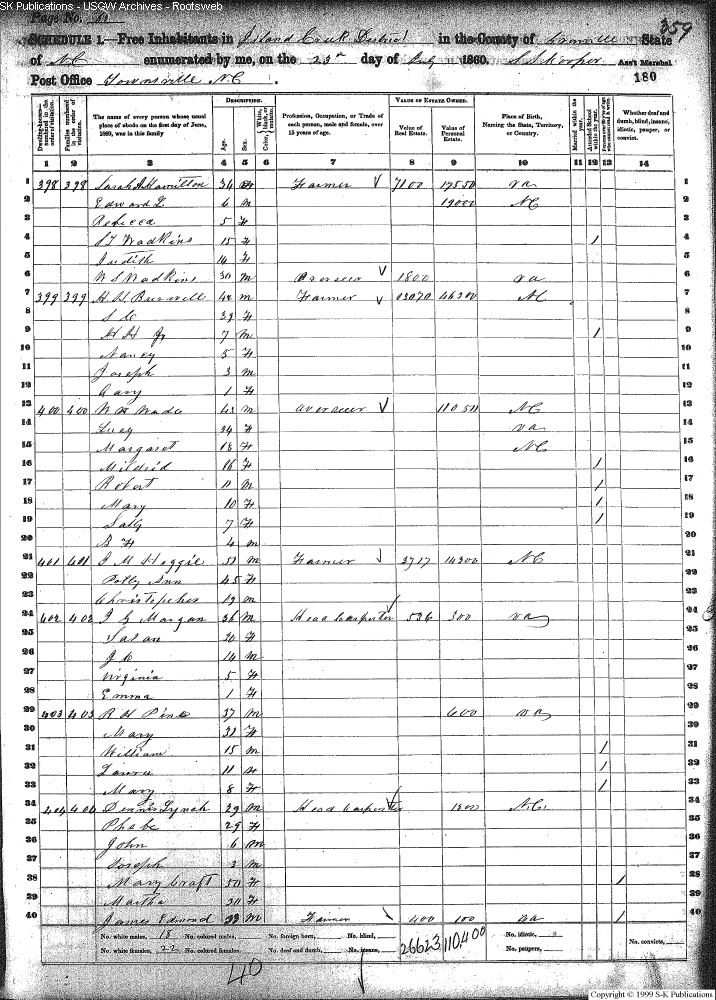 SK Publications - USGW Archives - Rootsweb
Page No.
359
SCHEDULE 1.—Free Inhabitants in Island Creek District in the County of Granville State
of NC enumerated by me, on the 23rd day of July 1860. Ass't Marshal
Post Office Townsville NC 180
DESCRIPTION. VALUE OF ESTATE OWNED.
Dwelling-houses—numbered in the order of visitation.
Families numbered in the order of visitation.
The name of every person whose usual place of abode on the first day of June, 1860, was in this family
Age.
Sex.
Color,
Profession, Occupation, or Trade of each person, male and female, over 15 years of age.
Value of Real Estate.
Value of Personal Estate.
Place of Birth, Naming the State, Territory, or Country.
Married within the year.
Attended School within the year.
Whether deaf and dumb, blind, insane, idiotic, pauper, or convict.
1 2 3 4 5 6 7 8 9 10 11 12 13 14
1 398 398 Sarah A Hamilton 34 Farmer 7100 17550 va 1
2 Edward L 6 m 19000 NC 2
3 Rebecca 5 F 3
4 Wadkins 15 F / 4
5 Judith 14 F 5
6 W S Wadkins 30 m Overseer 1800 va 6
7 399 399 H H Burwell 42 m Farmer 46300 NC 7
8 39 F 8
9 H H Jr 7 m / 9
10 Nancy 5 F 10
11 Joseph 3 m 11
12 1 F 12
13 400 400 W H Wade 42 m overseer 11050 NC 13
14 Lucy 34 F va 14
15 Margaret 18 F NC 15
16 Mildrid 16 F / 16
17 Robert 11 m / 17
18 Mary 10 F / 18
19 Sally 7 F / 19
20 4 m 20
21 401 401 Heggie 51 m Farmer 3717 14300 NC 21
22 Polly Ann 45 F 22
23 Christopher 19 m 23
24 402 402 J G Morgan 36 m Head Carpenter 536 300 va 24
25 Susan 30 F 25
26 14 m 26
27 Virginia 5 F 27
28 Emma 1 F 28
29 403 403 R H 37 m 600 va 29
30 Mary 32 F 30
31 William 15 m / 31
32 Laura 11 / 32
33 Mary 8 F / 33
34 404 404 Dennis Lynch 29 m Head Carpenter 1300 NC 34
35 Phebe 29 F 35
36 John 6 m 36
37 Joseph 3 m 37
38 Mary Craft 50 F / 38
39 Martha 30 F 39
40 James Edmond m Farmer 400 100 va / 40
No. white males, 18 No. colored males, No. foreign born, No. blind, No. idiotic,
No. white females, 22 No. colored females, No. deaf and dumb, No. insane, 26623 110400 No. paupers, No. convicts,
40
Copyright © 1999 S-K Publications